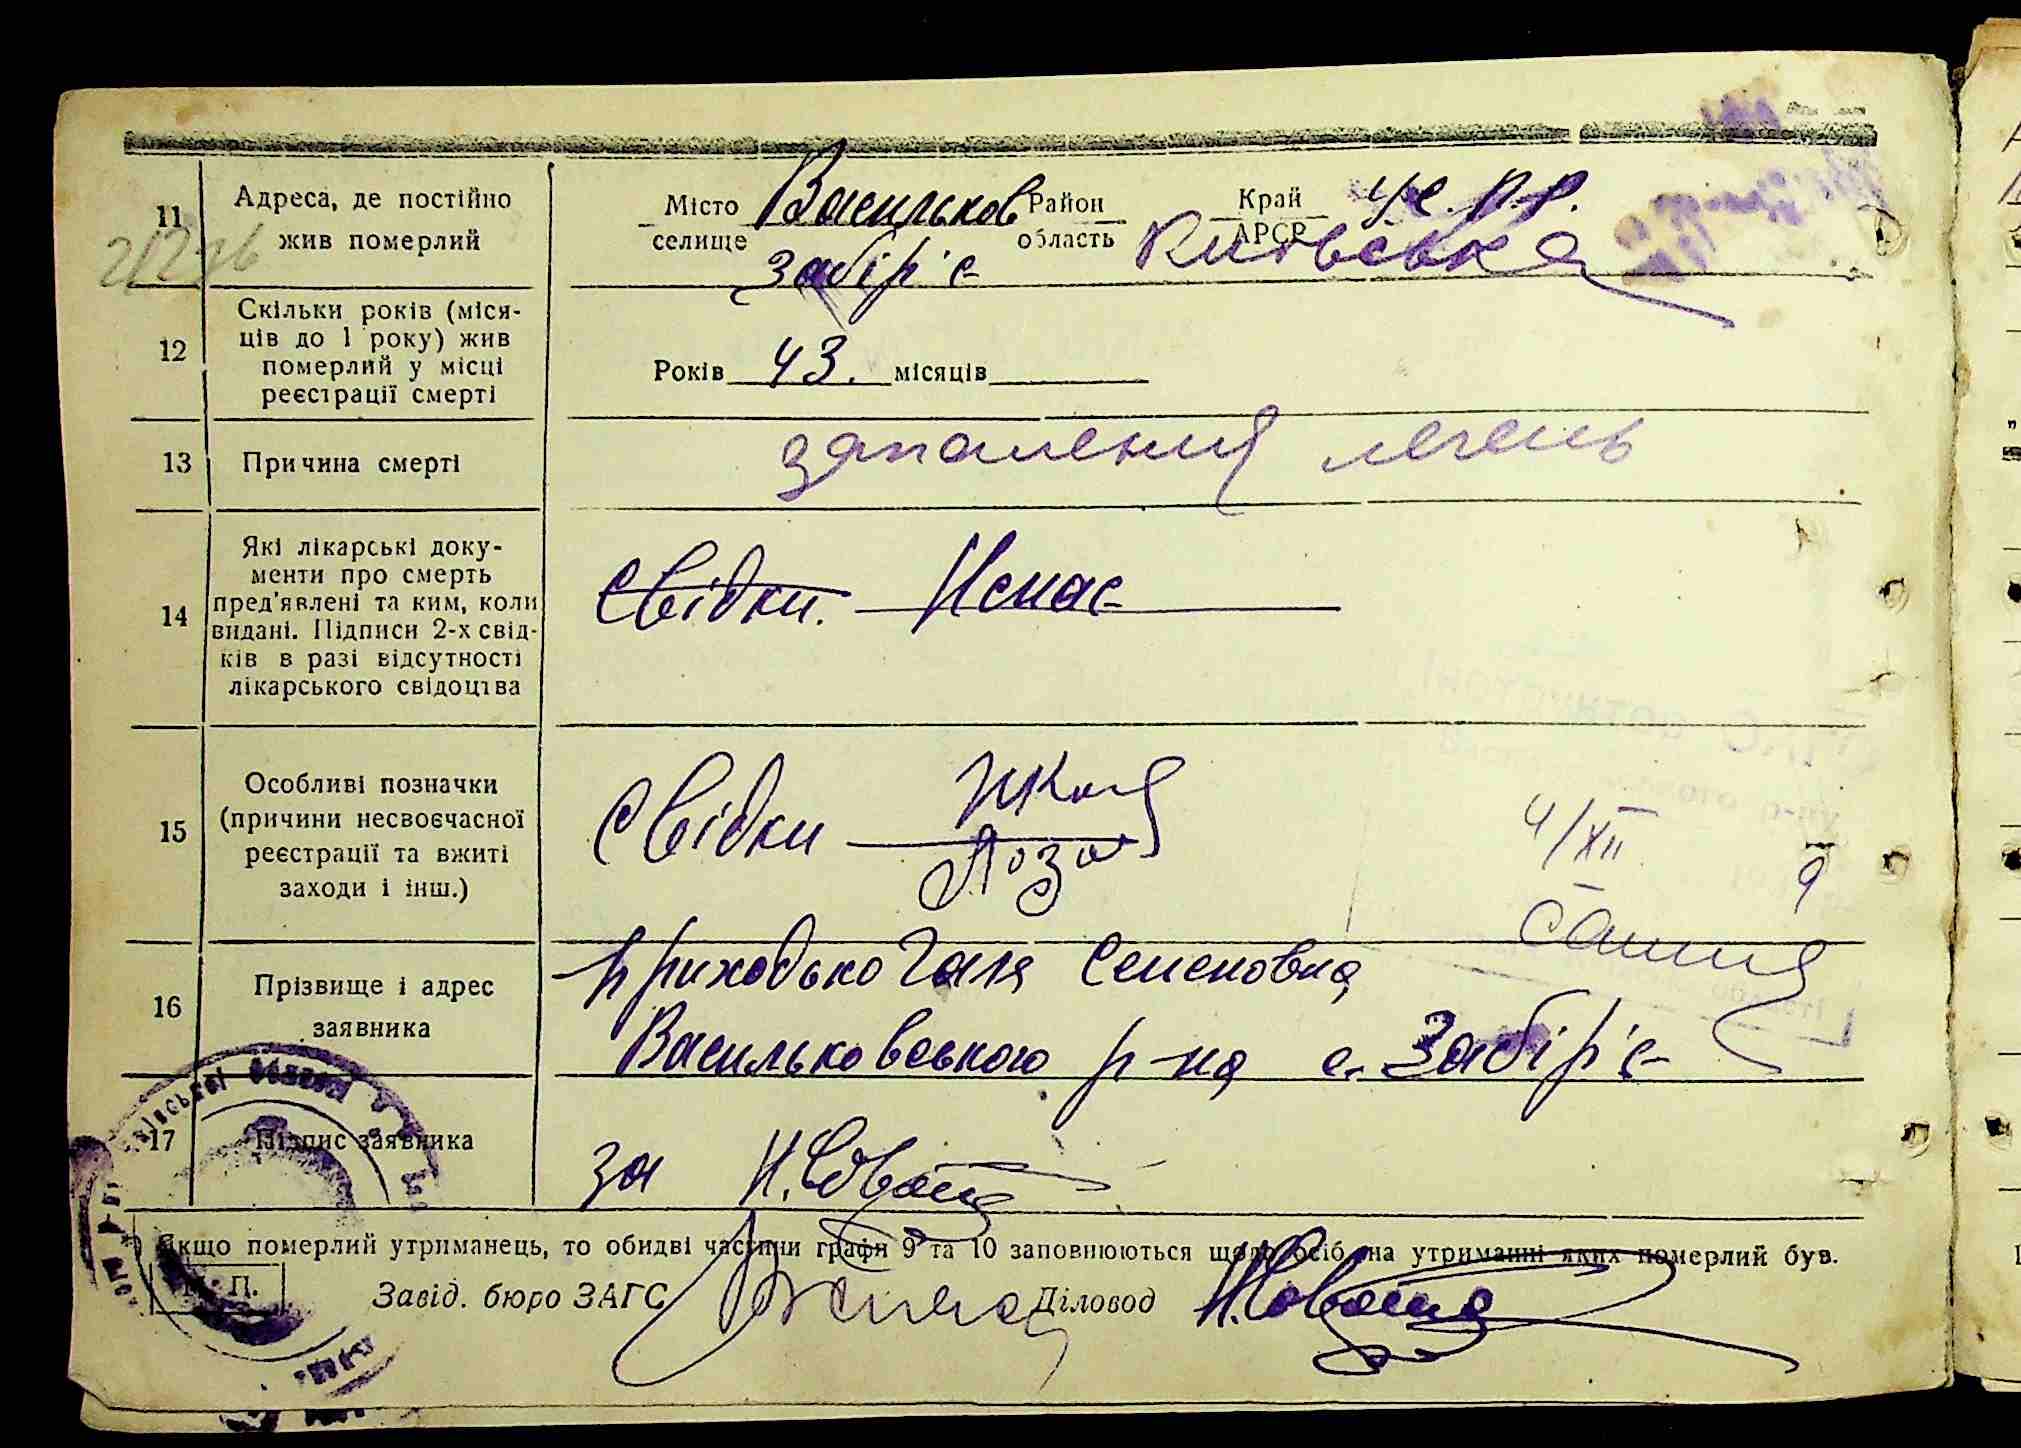 11 Адреса, де постійно жив померлий
Місто Васильков Район Край УС.Р.Р.
селище Забір'є область АРСР Київська
12 Скільки років (місяців до 1 року) жив померлий у місці реєстрації смерті
Років 43. місяців
13 Причина смерті
запалення легень
14 Які лікарські документи про смерть пред'явлені та ким, коли видані. Підписи 2-х свідків в разі відсутності лікарського свідоцтва
Свідки. Немає
15 Особливі позначки (причини несвоєчасної реєстрації та вжиті заходи і інш.)
Свідки
4/XII
16 Прізвище і адрес заявника
Приходько Галя Семеновна
Васильковського р-на с. Забір'є
17 Підпис заявника
за
Якщо померлий утриманець, то обидві частини графи 9 та 10 заповнюються щодо осіб, на утриманні яких померлий був.
М. П. Завід. бюро ЗАГС Діловод